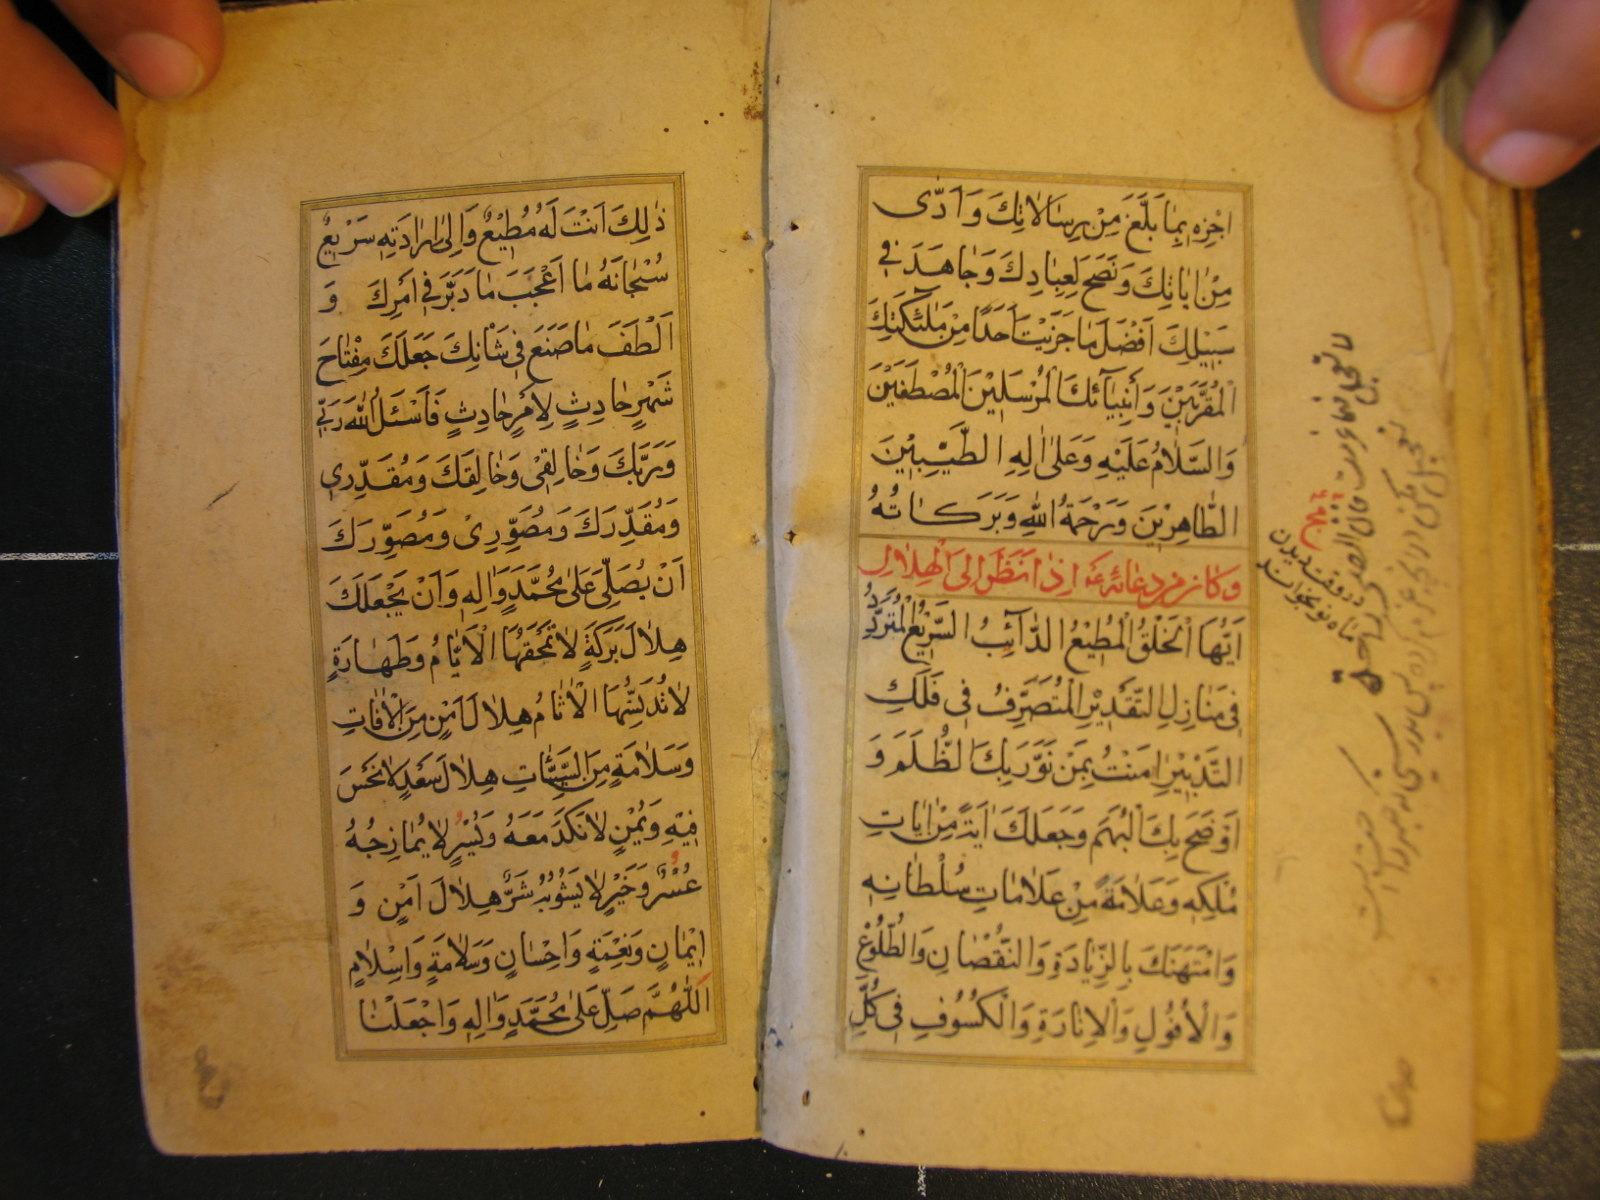 اجْزِهِ بِمَا بَلَّغَ مِنْ رِسَالَاتِكَ وَاَدّٰى
مِنْ اٰيَاتِكَ وَنَصَحَ لِعِبَادِكَ وَجَاهَدَ فِي
سَبِيْلِكَ اَفْضَلَ مَا جَزَيْتَ اَحَدًا مِنْ مَلٰئِكَتِكَ
الْمُقَرَّبِيْنَ وَأَنْبِيَآئِكَ الْمُرْسَلِيْنَ الْمُصْطَفَيْنَ
وَالسَّلَامُ عَلَيْهِ وَعَلٰى اٰلِهِ الطَّيِّبِيْنَ
الطَّاهِرِيْنَ وَرَحْمَةُ اللهِ وَبَرَكَاتُهُ
وكان من دعائه ع اذا نظر الى الهلال
اَيُّهَا الْخَلْقُ الْمُطِيْعُ الدَّآئِبُ السَّرِيْعُ الْمُتَرَدِّدُ
فِي مَنَازِلِ التَّقْدِيْرِ الْمُتَصَرِّفُ فِي فَلَكِ
التَّدْبِيْرِ اٰمَنْتُ بِمَنْ نَوَّرَ بِكَ الظُّلَمَ وَ
اَوْضَحَ بِكَ الْبُهَمَ وَجَعَلَكَ اٰيَةً مِنْ اٰيَاتِ
مُلْكِهِ وَعَلَامَةً مِنْ عَلَامَاتِ سُلْطَانِهِ
وَامْتَهَنَكَ بِالزِّيَادَةِ وَالنُّقْصَانِ وَالطُّلُوْعِ
وَالْاُفُوْلِ وَالْاِنَارَةِ وَالْكُسُوْفِ فِي كُلِّ
در وقت ديدن
ماه نو بخواند
ذٰلِكَ اَنْتَ لَهُ مُطِيْعٌ وَاِلٰى اِرَادَتِهِ سَرِيْعٌ
سُبْحَانَهُ مَا اَعْجَبَ مَا دَبَّرَ فِي اَمْرِكَ وَ
اَلْطَفَ مَا صَنَعَ فِي شَانِكَ جَعَلَكَ مِفْتَاحَ
شَهْرٍ حَادِثٍ لِاَمْرٍ حَادِثٍ فَاَسْئَلُ اللهَ رَبِّي
وَرَبَّكَ وَخَالِقِيْ وَخَالِقَكَ وَمُقَدِّرِي
وَمُقَدِّرَكَ وَمُصَوِّرِيْ وَمُصَوِّرَكَ
اَنْ يُصَلِّيَ عَلٰى مُحَمَّدٍ وَاٰلِهِ وَاَنْ يَجْعَلَكَ
هِلَالَ بَرَكَةٍ لَا تَمْحَقُهَا الْاَيَّامُ وَطَهَارَةٍ
لَا تُدَنِّسُهَا الْاٰثَامُ هِلَالَ اَمْنٍ مِنَ الْاٰفَاتِ
وَسَلَامَةٍ مِنَ السَّيِّئَاتِ هِلَالَ سَعْدٍ لَا نَحْسَ
فِيْهِ وَيُمْنٍ لَا نَكَدَ مَعَهُ وَيُسْرٍ لَا يُمَازِجُهُ
عُسْرٌ وَخَيْرٍ لَا يَشُوْبُهُ شَرٌّ هِلَالَ اَمْنٍ وَ
اِيْمَانٍ وَنِعْمَةٍ وَاِحْسَانٍ وَسَلَامَةٍ وَاِسْلَامٍ
اَللّٰهُمَّ صَلِّ عَلٰى مُحَمَّدٍ وَاٰلِهِ وَاجْعَلْنَا